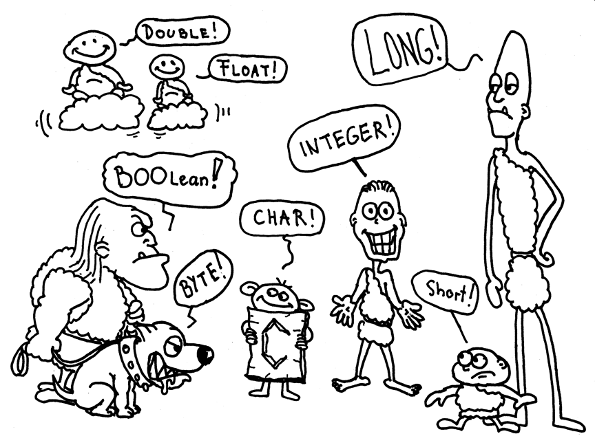 DOUBLE!
FLOAT!
LONG!
INTEGER!
BOOLean!
CHAR!
BYTE!
Short!
C